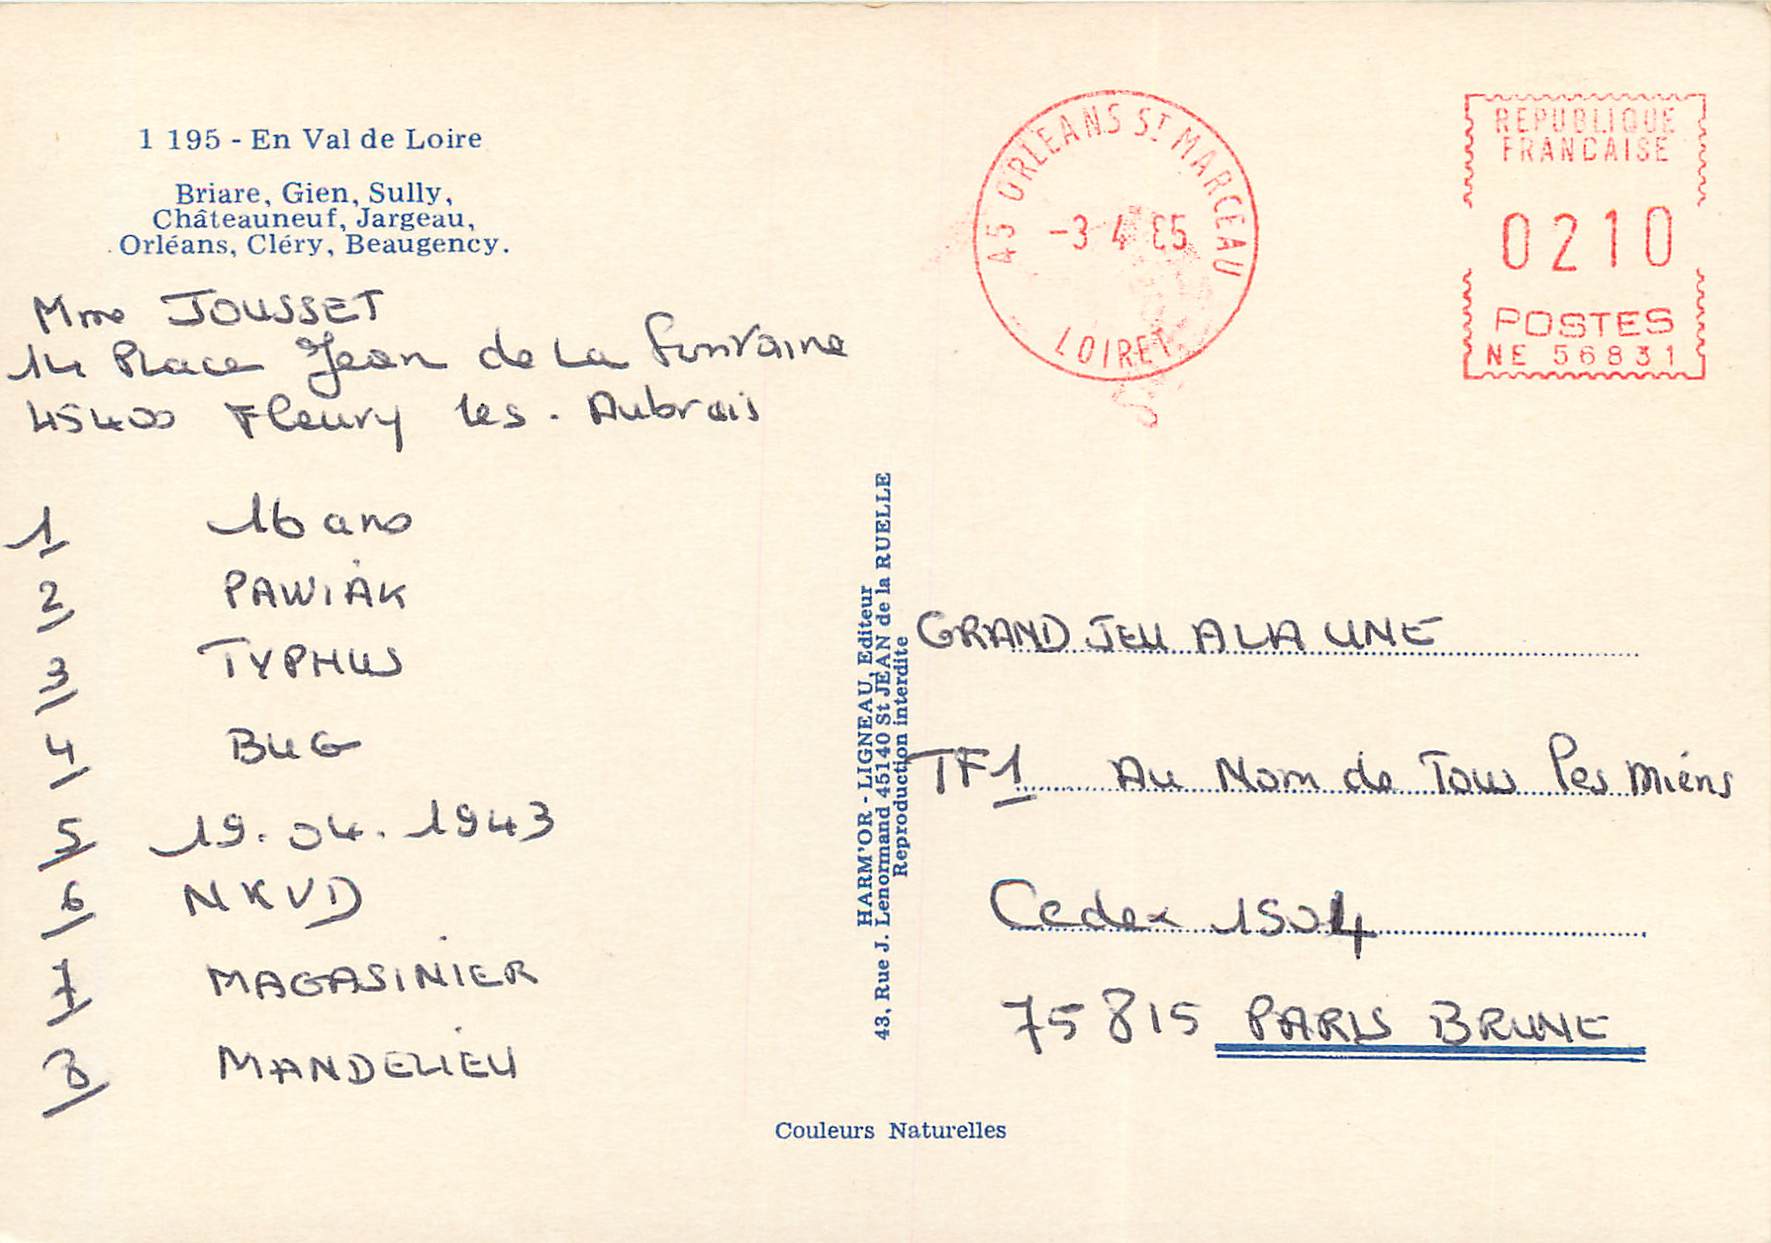 1 195 - En Val de Loire
Briare, Gien, Sully,
Châteauneuf, Jargeau,
Orléans, Cléry, Beaugency.
Mme JOUSSET
14 Place Jean de La Fontaine
45400 Fleury les - Aubrais
1 16 ans
2 PAWIAK
3 TYPHUS
4 BUG
5 19.04.1943
6 NKVD
7 MAGASINIER
8 MANDELIEU
HARM'OR - LIGNEAU, Editeur
43, Rue J. Lenormand 45140 St JEAN de la RUELLE
Reproduction interdite
Couleurs Naturelles
45 ORLEANS ST MARCEAU
-3 4 85
LOIRET
REPUBLIQUE
FRANCAISE
0210
POSTES
NE 56831
GRAND JEU A LA UNE
TF1 Au Nom de Tous les Miens
Cedex 1504
75815 PARIS BRUNE